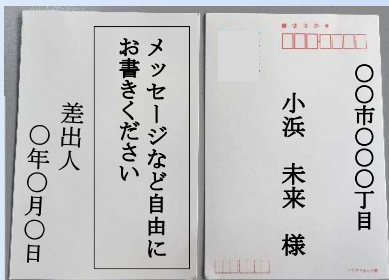 メッセージなど自由に
お書きください
差出人
〇年〇月〇日
郵便はがき
〇〇市〇〇〇丁目
小浜 未来 様